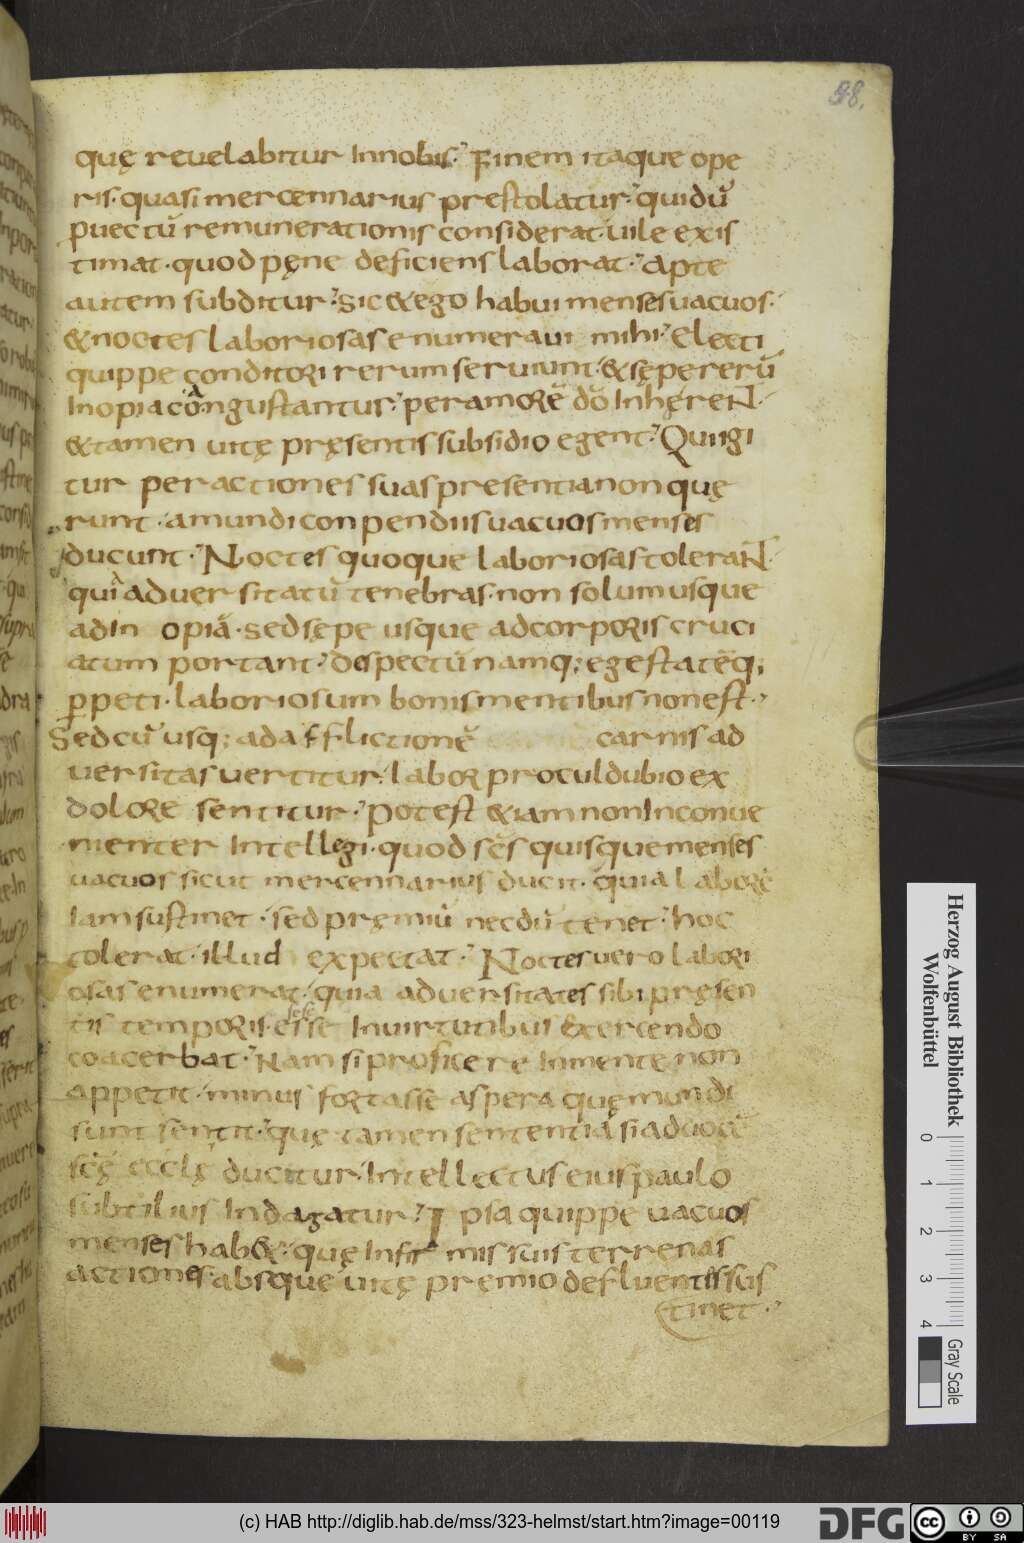 58.
quę reuelabitur Innobis. Finem itaque ope
ris. quasi mercennarius prestolatur. quidū
puectū remunerationis considerat. uile exis
timat. quod pęne deficiens laborat. Apte
autem subditur. sic & ego habui menses uacuos.
& noctes laboriosas enumeraui mihi. Electi
quippe conditori rerum seruiunt. & sępe rerū
Inopia coangustantur. per amorē dō Inhęrent.
& tamen uitę pręsentis subsidio egent. Qui igi
tur per actiones suas presentia non quę
runt. a mundi conpendiis uacuos menses
ducunt. Noctes quoque laboriosas tolerant.
quia aduersitatū tenebras. non solum usque
ad Inopiā. sed sępe usque ad corporis cruci
atum portant. despectū namq; egestatēq;
ppeti. laboriosum bonis mentibus non est.
Sed cū usq; ad afflictionē carnis ad
uersitas uertitur. labor procul dubio ex
dolore sentitur. Potest & iam non Inconue
nienter Intellegi. quod sēs quisque menses
uacuos sicut mercennarius ducit. quia laborē
Iam sustinet. sed pręmiū necdū tenet. hoc
tolerat. illud expectat. Noctes uero labori
osas enumerat. quia aduersitates sibi pręsen
tis temporis. esse Inuirtutibus exercendo
sese
coacerbat. Nam si proficere Inmente non
appetit. minus fortasse aspera quę mundi
sunt sentit. quę tamen sententia si ad uocē
scę ecclę ducitur. Intellectus eius paulo
subtilius Indagatur. Ipsa quippe uacuos
menses hab&. quę Infirmis suis terrenas
actiones absque uitę premio defluentis sus
tinet.
Herzog August Bibliothek
Wolfenbüttel
0 1 2 3 4
Gray Scale
(c) HAB http://diglib.hab.de/mss/323-helmst/start.htm?image=00119
DFG
cc BY SA